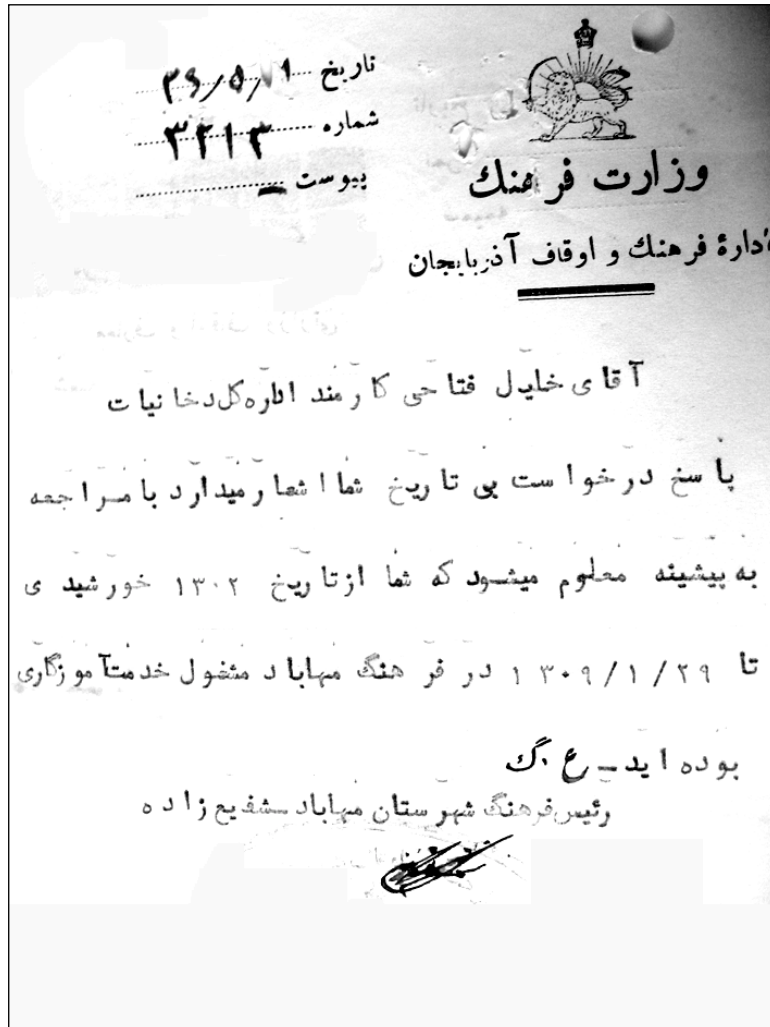 تاریخ ۲۹/۵/۹
شماره ۳۲۱۳
پیوست ـ
وزارت فرهنك
ادارهٔ فرهنك و اوقاف آذربایجان
آقای خلیل فتاحی کارمند اداره کل دخانیات
پاسخ درخواست بی تاریخ شما اشعار میدارد با مراجعه
به پیشینه معلوم میشود که شما از تاریخ ۱۳۰۲ خورشیدی
تا ۱۳۰۹/۱/۲۹ در فرهنگ مهاباد مشغول خدمت آموزگاری
بوده اید ـ ع.گ
رئیس فرهنگ شهرستان مهاباد ـ شفیع زاده